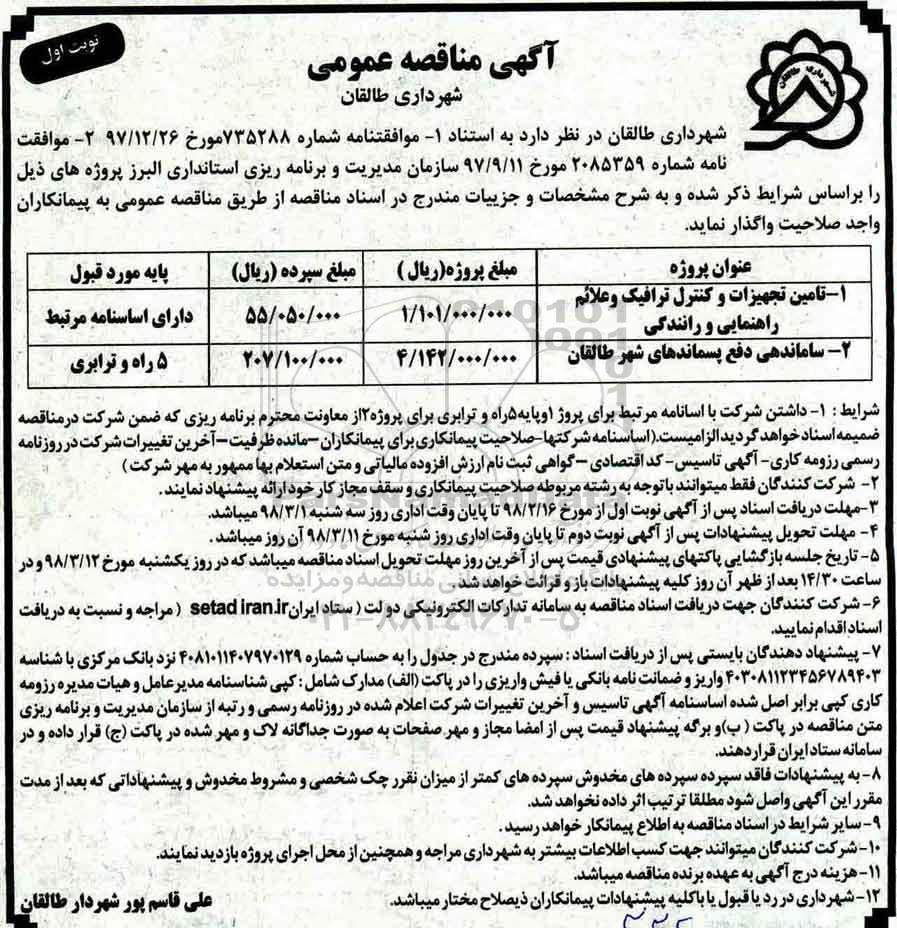 نوبت اول
آگهی مناقصه عمومی
شهرداری طالقان
شهرداری طالقان
شهرداری طالقان در نظر دارد به استناد ۱- موافقتنامه شماره ۷۳۵۲۸۸مورخ ۹۷/۱۲/۲۶ ۲- موافقت
نامه شماره ۲۰۸۵۳۵۹ مورخ ۹۷/۹/۱۱ سازمان مدیریت و برنامه ریزی استانداری البرز پروژه های ذیل
را براساس شرایط ذکر شده و به شرح مشخصات و جزییات مندرج در اسناد مناقصه از طریق مناقصه عمومی به پیمانکاران
واجد صلاحیت واگذار نماید.
عنوان پروژه مبلغ پروژه(ریال ) مبلغ سپرده (ریال) پایه مورد قبول
۱-تامین تجهیزات و کنترل ترافیک وعلائم
راهنمایی و رانندگی ۱/۱۰۱/۰۰۰/۰۰۰ ۵۵/۰۵۰/۰۰۰ دارای اساسنامه مرتبط
۲- ساماندهی دفع پسماندهای شهر طالقان ۴/۱۴۲/۰۰۰/۰۰۰ ۲۰۷/۱۰۰/۰۰۰ ۵ راه و ترابری
شرایط : ۱- داشتن شرکت با اسانامه مرتبط برای پروژ ۱وپایه۵راه و ترابری برای پروژه۲از معاونت محترم برنامه ریزی که ضمن شرکت درمناقصه
ضمیمه اسناد خواهد گردید الزامیست.(اساسنامه شرکتها-صلاحیت پیمانکاری برای پیمانکاران –مانده ظرفیت–آخرین تغییرات شرکت در روزنامه
رسمی رزومه کاری- آگهی تاسیس- کد اقتصادی –گواهی ثبت نام ارزش افزوده مالیاتی و متن استعلام بها ممهور به مهر شرکت )
۲- شرکت کنندگان فقط میتوانند باتوجه به رشته مربوطه صلاحیت پیمانکاری و سقف مجاز کار خود ارائه پیشنهاد نمایند .
۳-مهلت دریافت اسناد پس از آگهی نوبت اول از مورخ ۹۸/۲/۱۶ تا پایان وقت اداری روز سه شنبه ۹۸/۳/۱ میباشد.
۴- مهلت تحویل پیشنهادات پس از آگهی نوبت دوم تا پایان وقت اداری روز شنبه مورخ ۹۸/۳/۱۱ آن روز میباشد .
۵- تاریخ جلسه بازگشایی پاکتهای پیشنهادی قیمت پس از آخرین روز مهلت تحویل اسناد مناقصه میباشد که در روز یکشنبه مورخ ۹۸/۳/۱۲ و در
ساعت ۱۴/۳۰ بعد از ظهر آن روز کلیه پیشنهادات باز و قرائت خواهد شد .
۶- شرکت کنندگان جهت دریافت اسناد مناقصه به سامانه تدارکات الکترونیکی دو لت ( ستاد ایران setad iran.ir ( مراجه و نسبت به دریافت
اسناد اقدام نمایید.
۷- پیشنهاد دهندگان بایستی پس از دریافت اسناد : سپرده مندرج در جدول را به حساب شماره ۴۰۸۱۰۱۱۴۰۷۹۷۰۱۲۹ نزد بانک مرکزی با شناسه
۴۰۳۰۸۱۱۲۳۴۵۶۷۸۹۴۰۳ واریز و ضمانت نامه بانکی یا فیش واریزی را در پاکت (الف) مدارک شامل : کپی شناسنامه مدیرعامل و هیات مدیره رزومه
کاری کپی برابر اصل شده اساسنامه آگهی تاسیس و آخرین تغییرات شرکت اعلام شده در روزنامه رسمی و رتبه از سازمان مدیریت و برنامه ریزی
متن مناقصه در پاکت ( ب)و برگه پیشنهاد قیمت پس از امضا مجاز و مهر صفحات به صورت جداگانه لاک و مهر شده در پاکت (ج) قرار داده و در
سامانه ستاد ایران قرار دهند.
۸- به پیشنهادات فاقد سپرده سپرده های مخدوش سپرده های کمتر از میزان نقرر چک شخصی و مشروط مخدوش و پیشنهاداتی که بعد از مدت
مقرر این آگهی واصل شود مطلقا ترتیب اثر داده نخواهد شد.
۹- سایر شرایط در اسناد مناقصه به اطلاع پیمانکار خواهد رسید .
۱۰-شرکت کنندگان میتوانند جهت کسب اطلاعات بیشتر به شهرداری مراجه و همچنین از محل اجرای پروژه بازدید نمایند.
۱۱-هزینه درج آگهی به عهده برنده مناقصه میباشد.
۱۲-شهرداری در رد یا قبول یا باکلیه پیشنهادات پیمانکاران ذیصلاح مختار میباشد.
علی قاسم پور شهردار طالقان
۰۲۱-۸۸۳۴۹۶۷۰-۵